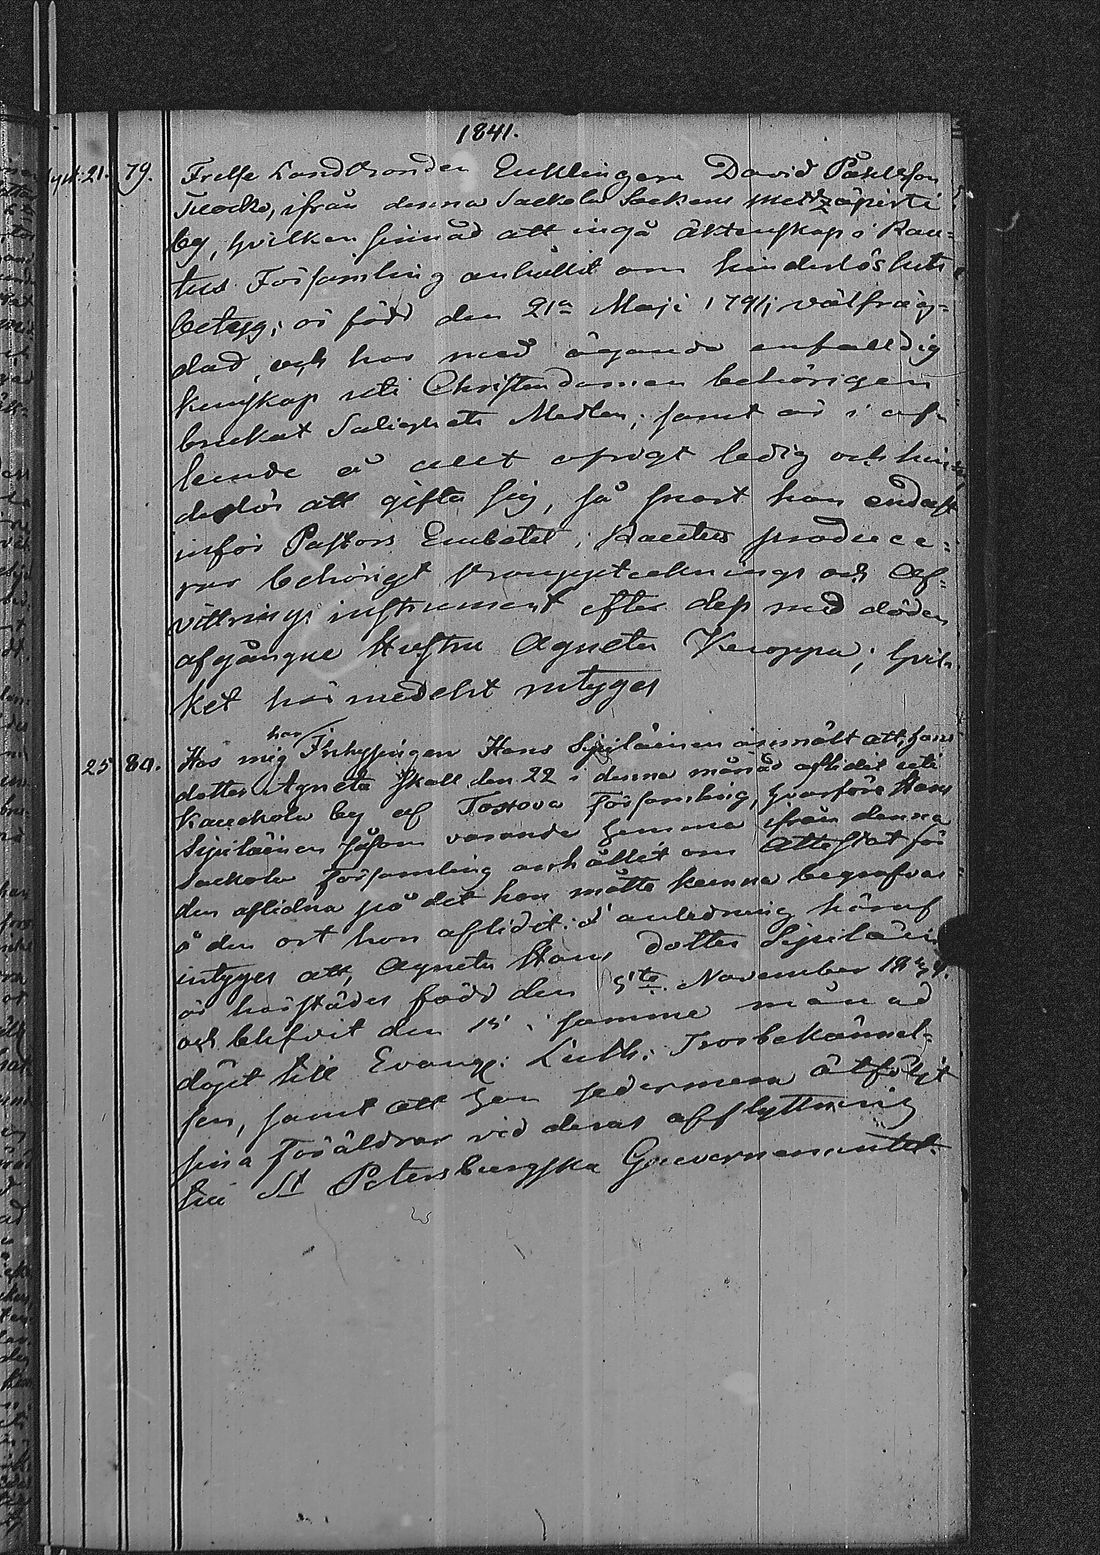 1841.
Sept. 21. 79. Frelse Landbonden Enklingen David Påhlsson
Tuocko, ifrån denna Sackola Sockens Metzäpirti
by, hvilken sinnad att ingå äktenskap i Rau-
tus Församling anhållit om hinderslöshets
betyg; är född den 21a Maji 1791; välfräg-
dad, och har med ägande enfalldig
kunskap uti Christendomen behörigen
brukat Salighets Medlen; samt är i af-
seende å allt öfrigt ledig och hin-
derslös att gifta sig, så snart han endast
inför Pastors Embetet i Rautus produce-
rar behörigt
vittrings instrument efter dess med döden
afgångne Hustru Agneta Keroppa; hvil-
ket här medelst intygas
25 80. Hos mig har Inhysingen Hans Sipiläinen anmält att, hans
dotter Agneta skall den 22 i denna månad aflidet uti
by af Toxova Församling, hvarföre Hans
Sipiläinen såsom varande hemma ifrån denna
Sackola Församling anhållit om Attestat för
den aflidna på det hon måtte kunna begrafvas
å den ort hon aflidet. I anledning häraf
intygas att, Agneta Hans dotter Sipiläin
är härstädes född den 5te November
och blifvit den 15 i samma månad
döpt till Evang: Luth: Trosbekännel-
sen, samt att hon sedermera åtföljt
sina Föräldrar vid deras afflyttning
till St Petersburgska Gouvernementet.